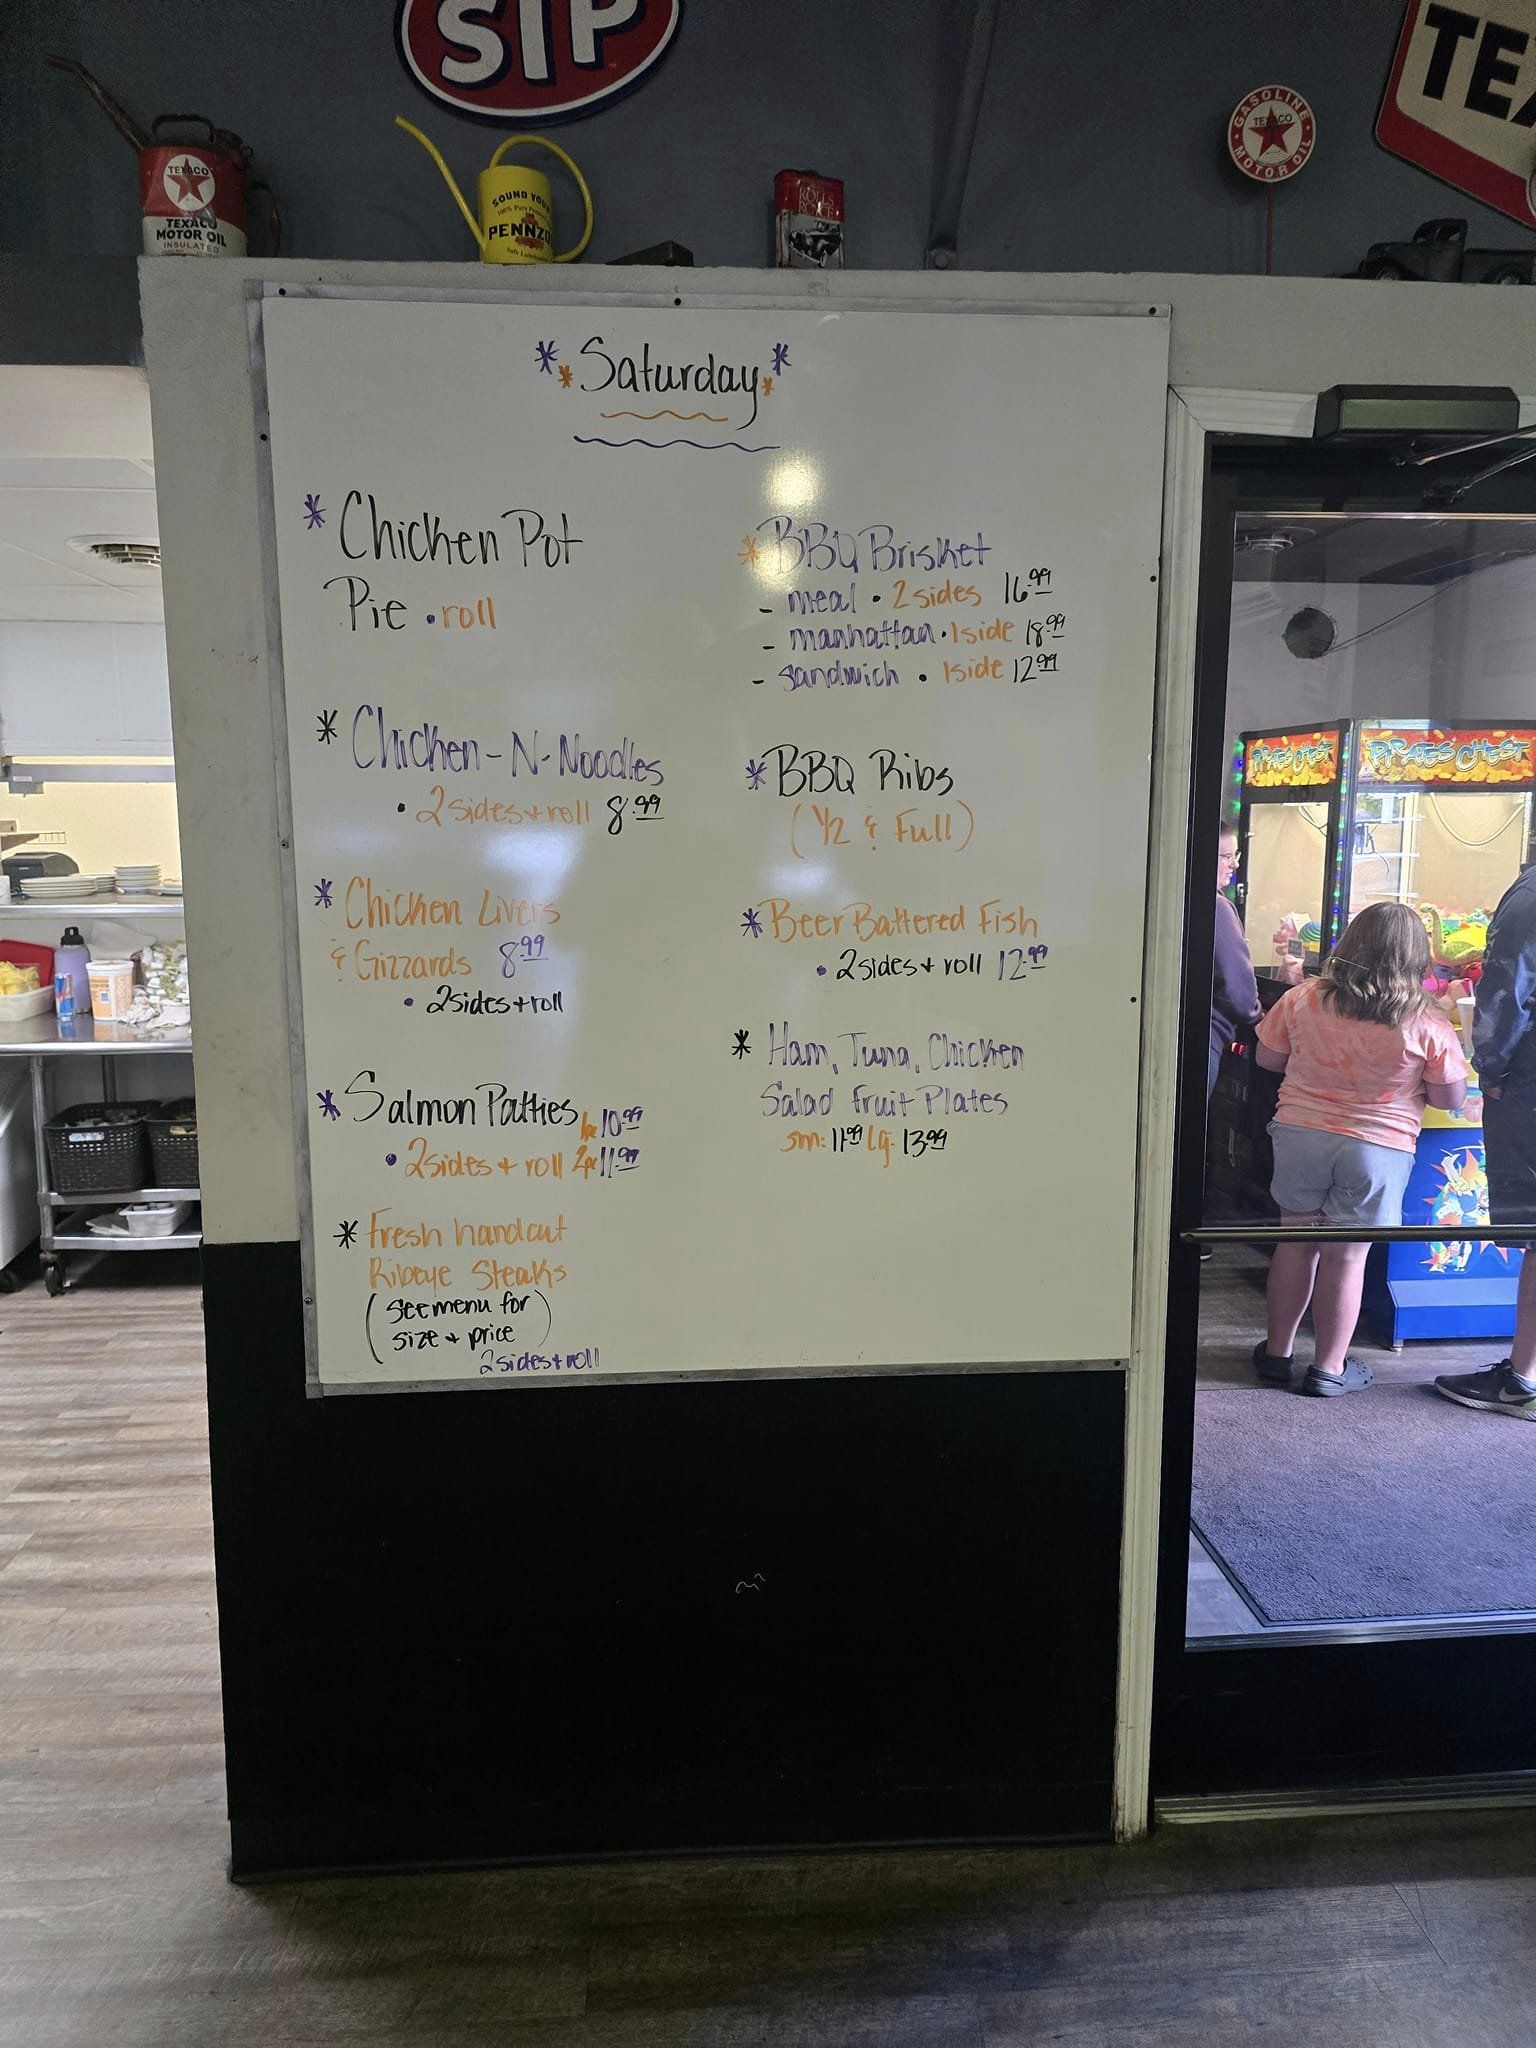 STP
TEXACO
TEXACO
MOTOR OIL
INSULATED
SOUND YOUR
100% Pure
PENNZO
Safe Lubrication
ROLLS
ROYCE
GASOLINE
TEXACO
MOTOR OIL
TEX
* * Saturday * *
* Chicken Pot
Pie • roll
* Chicken-N-Noodles
• 2 sides + roll 8.99
* Chicken Livers
& Gizzards 8.99
• 2 sides + roll
* Salmon Patties 1pc 10.99
• 2 sides + roll 2pc 11.99
* Fresh handcut
Ribeye Steaks
(see menu for
size + price)
2 sides + roll
* BBQ Brisket
- meal • 2 sides 16.99
- manhattan • 1 side 18.99
- sandwich • 1 side 12.99
* BBQ Ribs
(1/2 & Full)
* Beer Battered Fish
• 2 sides + roll 12.99
* Ham, Tuna, Chicken
Salad fruit Plates
sm: 11.99 Lg: 13.99
PIRATE'S CHEST
PIRATE'S CHEST